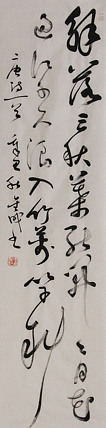 解落三秋葉能開二月花
過江千尺浪入竹萬竿斜
唐詩一首